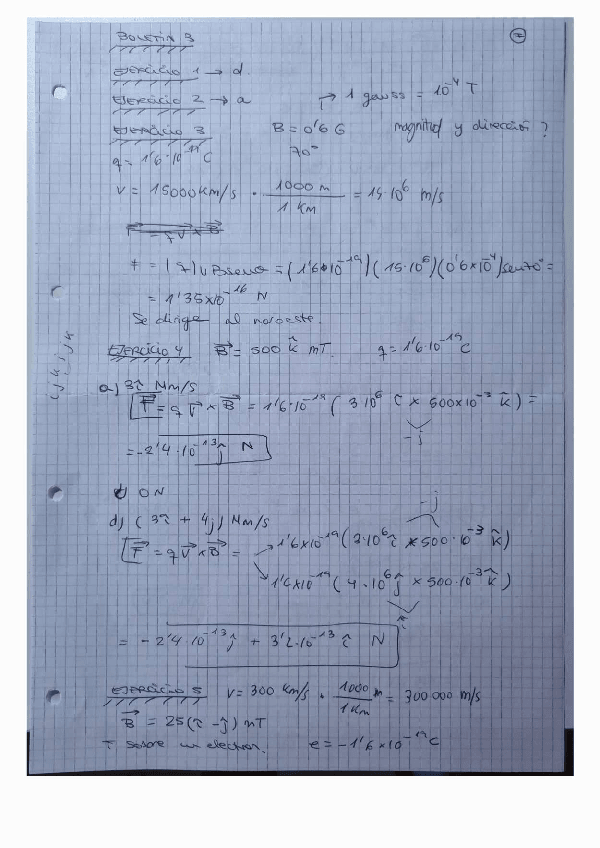 BOLETÍN 3
EJERCICIO 1 → d.
EJERCICIO 2 → a
→ 1 gauss = 10⁻⁴ T
EJERCICIO 3 B = 0'6 G magnitud y dirección?
q = 1'6·10⁻¹⁹ C 70°
v = 15000 KM/s · 1000 m / 1 KM = 15·10⁶ m/s
F = q v x B
F = |q| v B senα = (1'6·10⁻¹⁹)(15·10⁶)(0'6×10⁻⁴) sen70° =
= 1'35×10⁻¹⁶ N
Se dirige al noroeste.
EJERCICIO 4 B = 500 k̂ mT. q = 1'6·10⁻¹⁹ C
i j k i j k
a) 3î Mm/s
F = q v × B = 1'6·10⁻¹⁹ ( 3·10⁶ î × 500×10⁻³ k̂ ) =
-j
= -2'4·10⁻¹³ ĵ N
0N
-j
d) (3î + 4ĵ) Mm/s
F = q v × B = 1'6×10⁻¹⁹ (3·10⁶ î × 500·10⁻³ k̂)
1'6×10⁻¹⁹ ( 4·10⁶ ĵ × 500·10⁻³ k̂ )
î
= -2'4·10⁻¹³ ĵ + 3'2·10⁻¹³ î N
EJERCICIO 5 v = 300 Km/s · 1000 m / 1 KM = 300 000 m/s
B = 25(î - ĵ) nT
F sobre un electron. e = -1'6×10⁻¹⁹ C